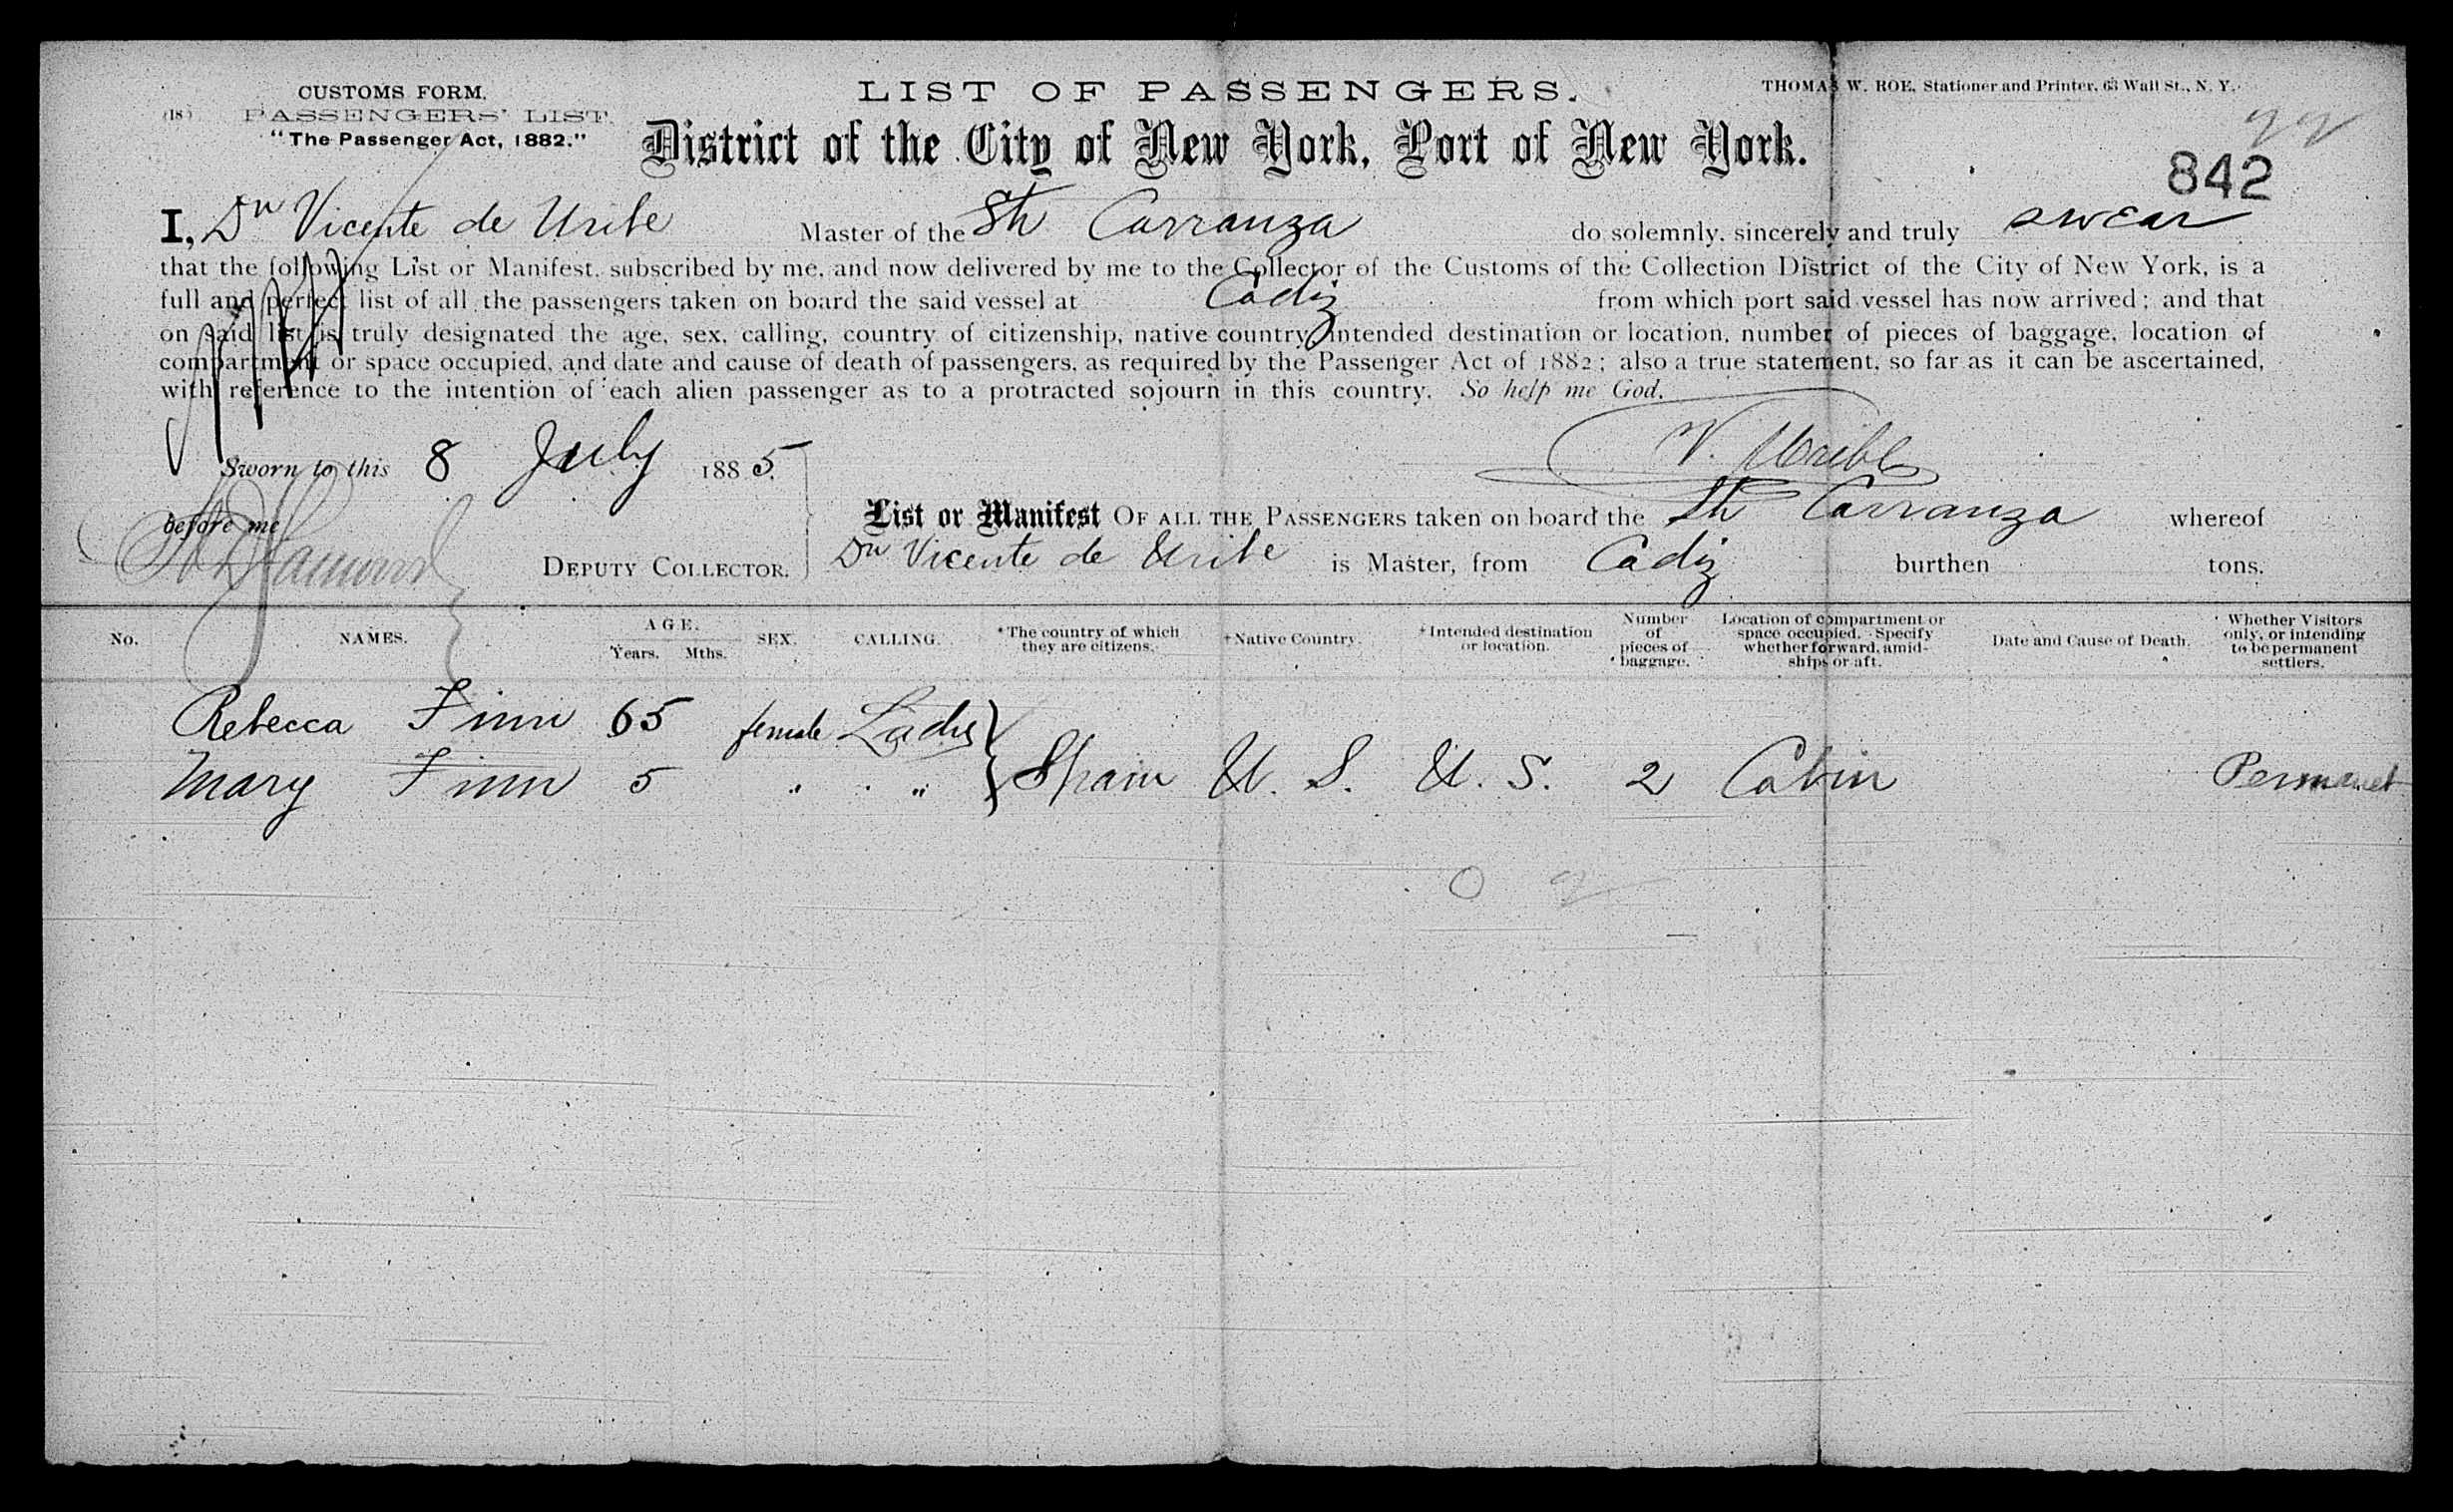 CUSTOMS FORM.
(18) PASSENGERS' LIST.
"The Passenger Act, 1882."
LIST OF PASSENGERS.
THOMAS W. ROE, Stationer and Printer, 63 Wall St., N. Y.
District of the City of New York, Port of New York.
842
I, Dn Vicente de Uribe Master of the Str Carranza do solemnly, sincerely and truly swear
that the following List or Manifest, subscribed by me, and now delivered by me to the Collector of the Customs of the Collection District of the City of New York, is a
full and perfect list of all the passengers taken on board the said vessel at Cadiz from which port said vessel has now arrived; and that
on said list is truly designated the age, sex, calling, country of citizenship, native country, intended destination or location, number of pieces of baggage, location of
compartment or space occupied, and date and cause of death of passengers, as required by the Passenger Act of 1882; also a true statement, so far as it can be ascertained,
with reference to the intention of each alien passenger as to a protracted sojourn in this country. So help me God.
V. Uribe
Sworn to this 8 July 1885.
before me
DEPUTY COLLECTOR.
List or Manifest OF ALL THE PASSENGERS taken on board the Str Carranza whereof
Dn Vicente de Uribe is Master, from Cadiz burthen tons.
No. NAMES. AGE. Years. Mths. SEX. CALLING. *The country of which they are citizens. +Native Country. +Intended destination or location. Number of pieces of baggage. Location of compartment or space occupied. Specify whether forward, amidships or aft. Date and Cause of Death. Whether Visitors only, or intending to be permanent settlers.
Rebecca Finn 65 female Ladys
Mary Finn 5 " " Spain U. S. U. S. 2 Cabin Permanet